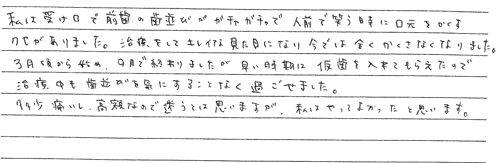 私は受け口で前歯の歯並びがガチャガチャで人前で笑う時に口元をかくす
クセがありました。治療をしてキレイな見た目になり今では全くかくさなくなりました。
3月頃から始め、9月で終わりましたが早い時期に仮歯を入れてもらえたので
治療中も歯並びを気にすることなく過ごせました。
多少痛いし、高額なので迷うとは思いますが、私はやってよかったと思います。